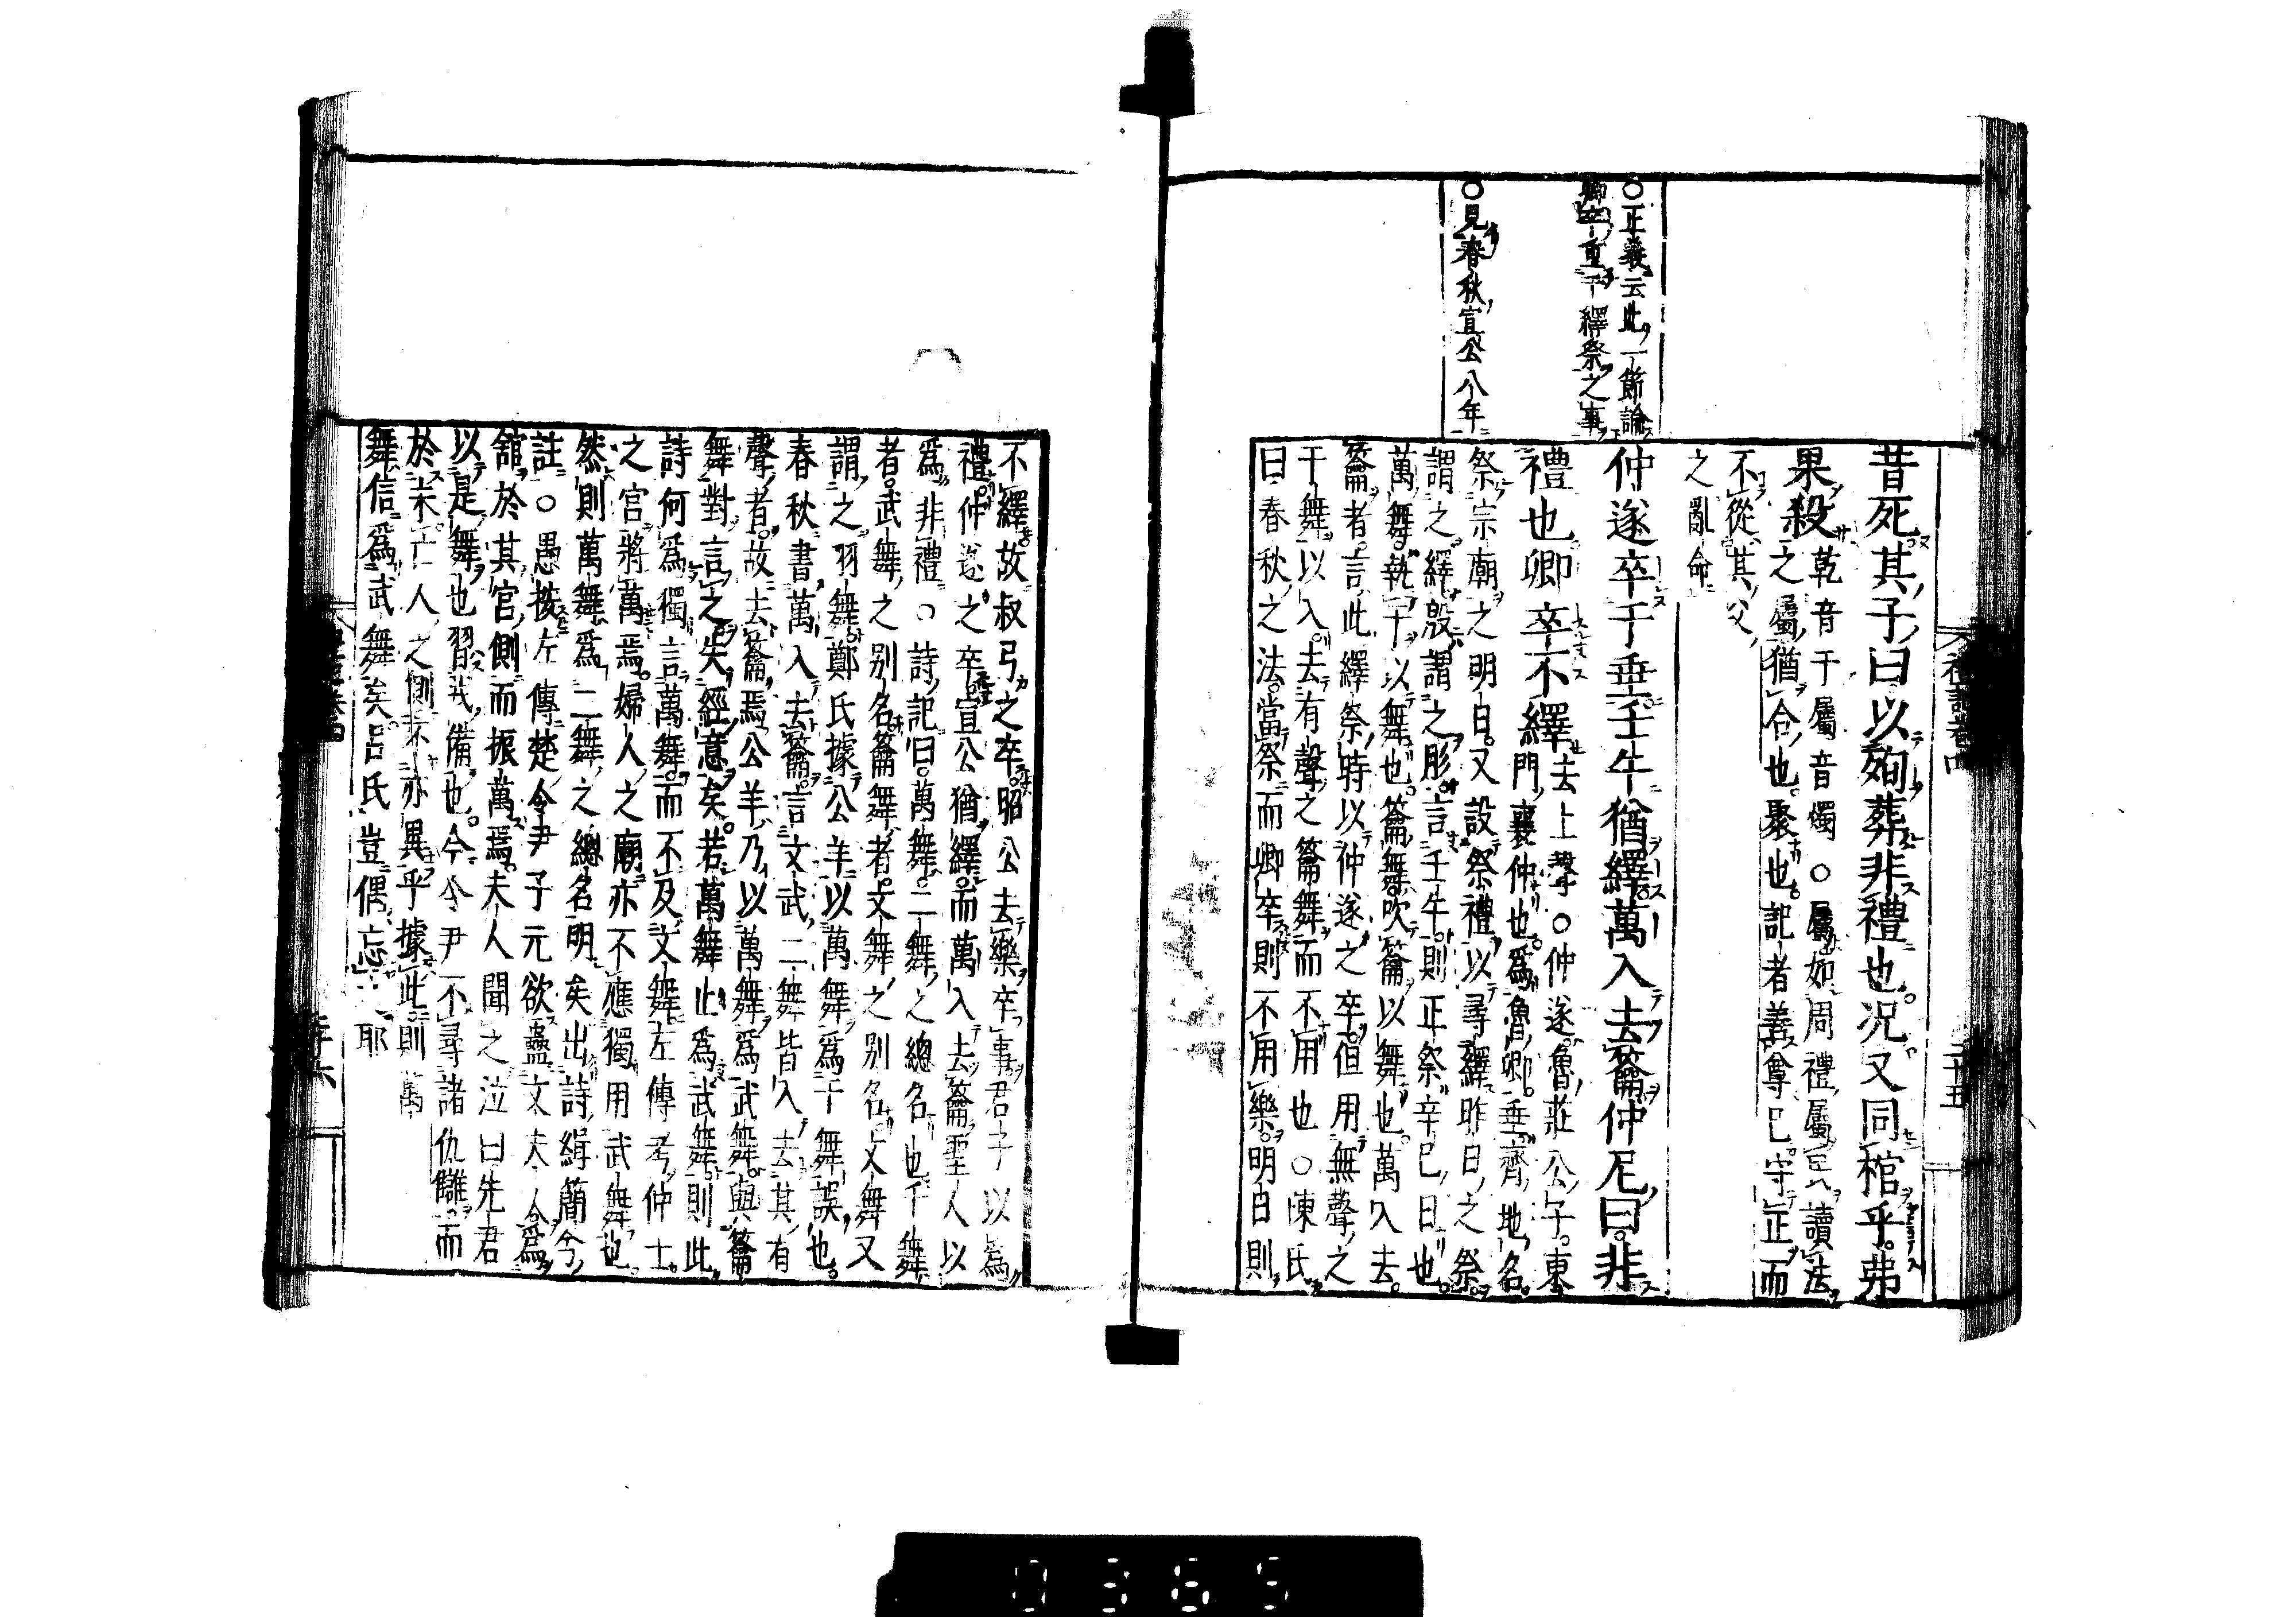 ○正義云此一節論
卿卒重于繹祭之事
○見春秋宣公八年
昔死其子曰以殉葬非禮也况又同棺乎弗
果殺乾音干屬音燭○屬如周禮屬民讀法
之屬猶合也聚也記者善尊己守正而
不從其父
之亂命
仲遂卒于垂壬午猶繹萬入去籥仲尼曰非
禮也卿卒不繹去上聲○仲遂魯莊公子東
門襄仲也爲魯卿垂齊地名
祭宗廟之明日又設祭禮以尋繹昨日之祭
謂之繹殷謂之肜言壬午則正祭辛巳日也
萬舞執干以舞也籥舞吹籥以舞也萬入去
籥者言此繹祭時以仲遂之卒但用無聲之
干舞以入去有聲之籥舞而不用也○陳氏
曰春秋之法當祭而卿卒則不用樂明日則
不繹故叔弓之卒昭公去樂卒事君子以爲
禮仲遂之卒宣公猶繹而萬入去籥聖人以
爲非禮○詩記曰萬舞二舞之總名也干舞
者武舞之别名籥舞者文舞之别名文舞又
謂之羽舞鄭氏據公羊以萬舞爲干舞誤也
春秋書萬入去籥言文武二舞皆入去其有
聲者故去籥焉公羊乃以萬舞爲武舞與籥
舞對言之失經意矣若萬舞止爲武舞則此
詩何爲獨言萬舞而不及文舞左傳考仲士
之宮將萬焉婦人之廟亦不應獨用武舞也
然則萬舞爲二舞之總名明矣出詩緝簡兮
註○愚按左傳楚令尹子元欲蠱文夫人爲
舘於其宮側而振萬焉夫人聞之泣曰先君
以是舞也習戎備也今令尹不尋諸仇讎而
於未亡人之側不亦異乎據此則萬
舞信爲武舞矣呂氏豈偶忘耶